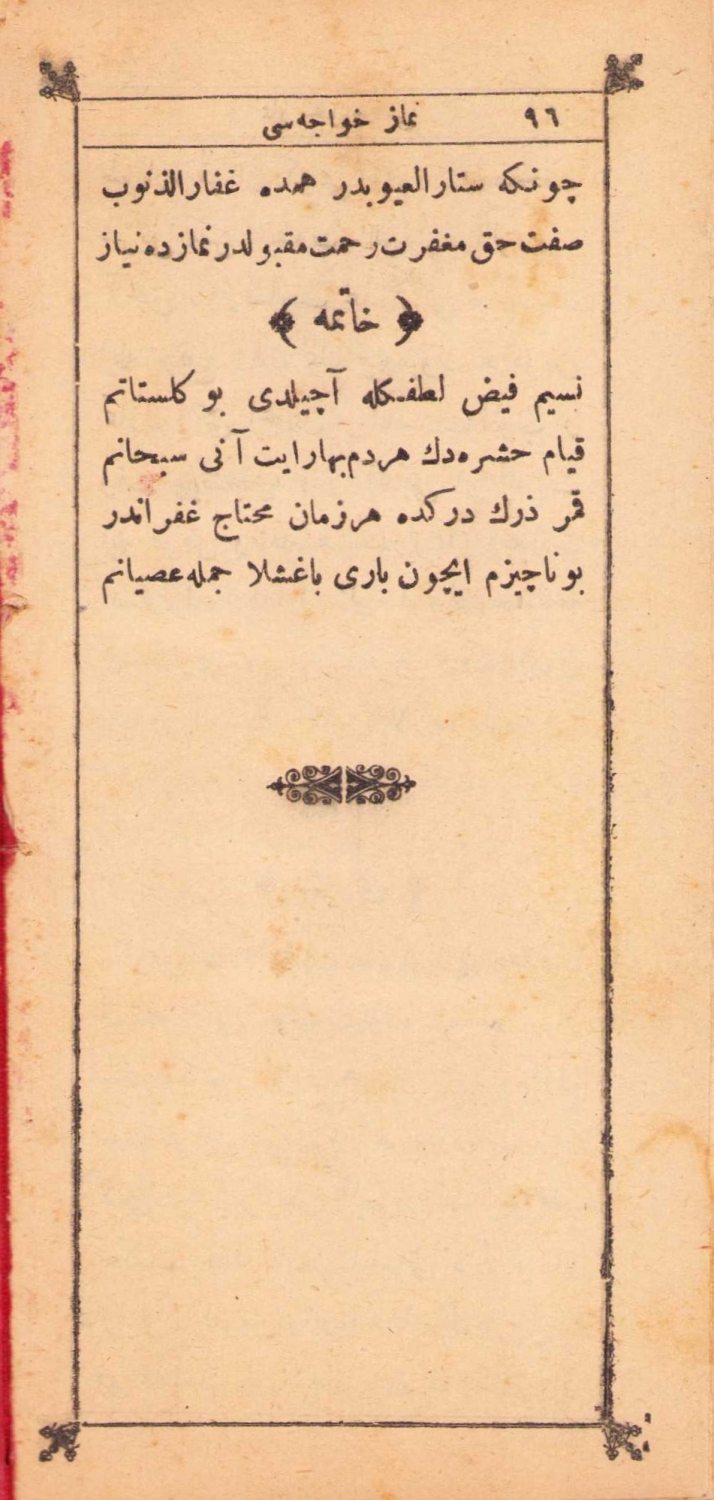 ٩٦ نماز خواجه‌سی
چونکه ستارالعیوبدر همده غفارالذنوب
صفت حق مغفرت رحمت مقبولدر نمازده نیاز
﴿ خاتمه ﴾
نسیم فیض لطفکله آچیلدی بو کلستانم
قیام حشره‌دك هردم بهار ایت آنی سبحانم
قمر ذرك درکده هرزمان محتاج غفراندر
بو ناچیزم ایچون باری باغشلا جمله عصیانم